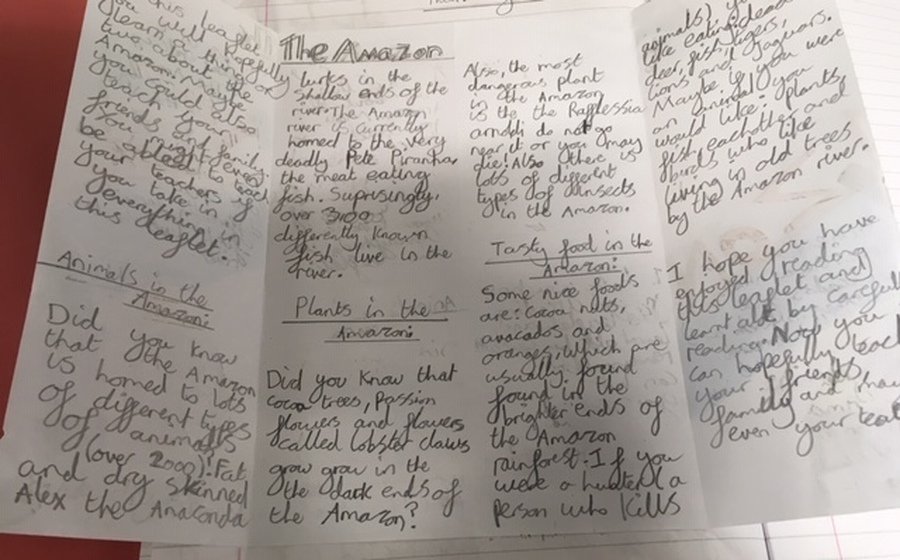 this leaflet
you will hopefully
learn a thing or
two about the
Amazon. Maybe
you could also
teach your
friends and family.
You might even
be able to teach
your teachers if
you take in
everything in
this leaflet.
Animals in the
Amazon:
Did you know
that the Amazon
is homed to lots
of different types
of animals
(over 2000)! Fat
and dry skinned
Alex the Anaconda
The Amazon
lurks in the
shallow ends of the
river. The Amazon
river is currently
homed to the very
deadly Pete Piranha,
the meat eating
fish. Suprisingly,
over 3100
differently known
fish live in the
river.
Plants in the
Amazon:
Did you know that
cocoa trees, Passion
flowers and flowers
called lobster claws
grow grow in the
the dark ends of
the Amazon?
Also, the most
dangerous plant
in the Amazon
is the the Rafflessia
arnoldi do not go
near it or you may
die! Also there is
lots of different
types of insects
in the Amazon.
Tasty food in the
Amazon:
Some nice foods
are: Cocoa nuts,
avocados and
oranges, which are
usually found
found in the
brighter ends of
the Amazon
rainforest. If you
were a hunter (a
person who kills
animals) you
like eating dead
deer, fish, tigers,
lions and jaguars.
Maybe if you were
an animal you
would like: plants,
fish, eachother and
birds who like
living in old trees
by the Amazon river.
I hope you have
enjoyed reading
this leaflet and
learnt alot by carefull
reading. Now you
can hopefully teach
your friends,
family and
even your